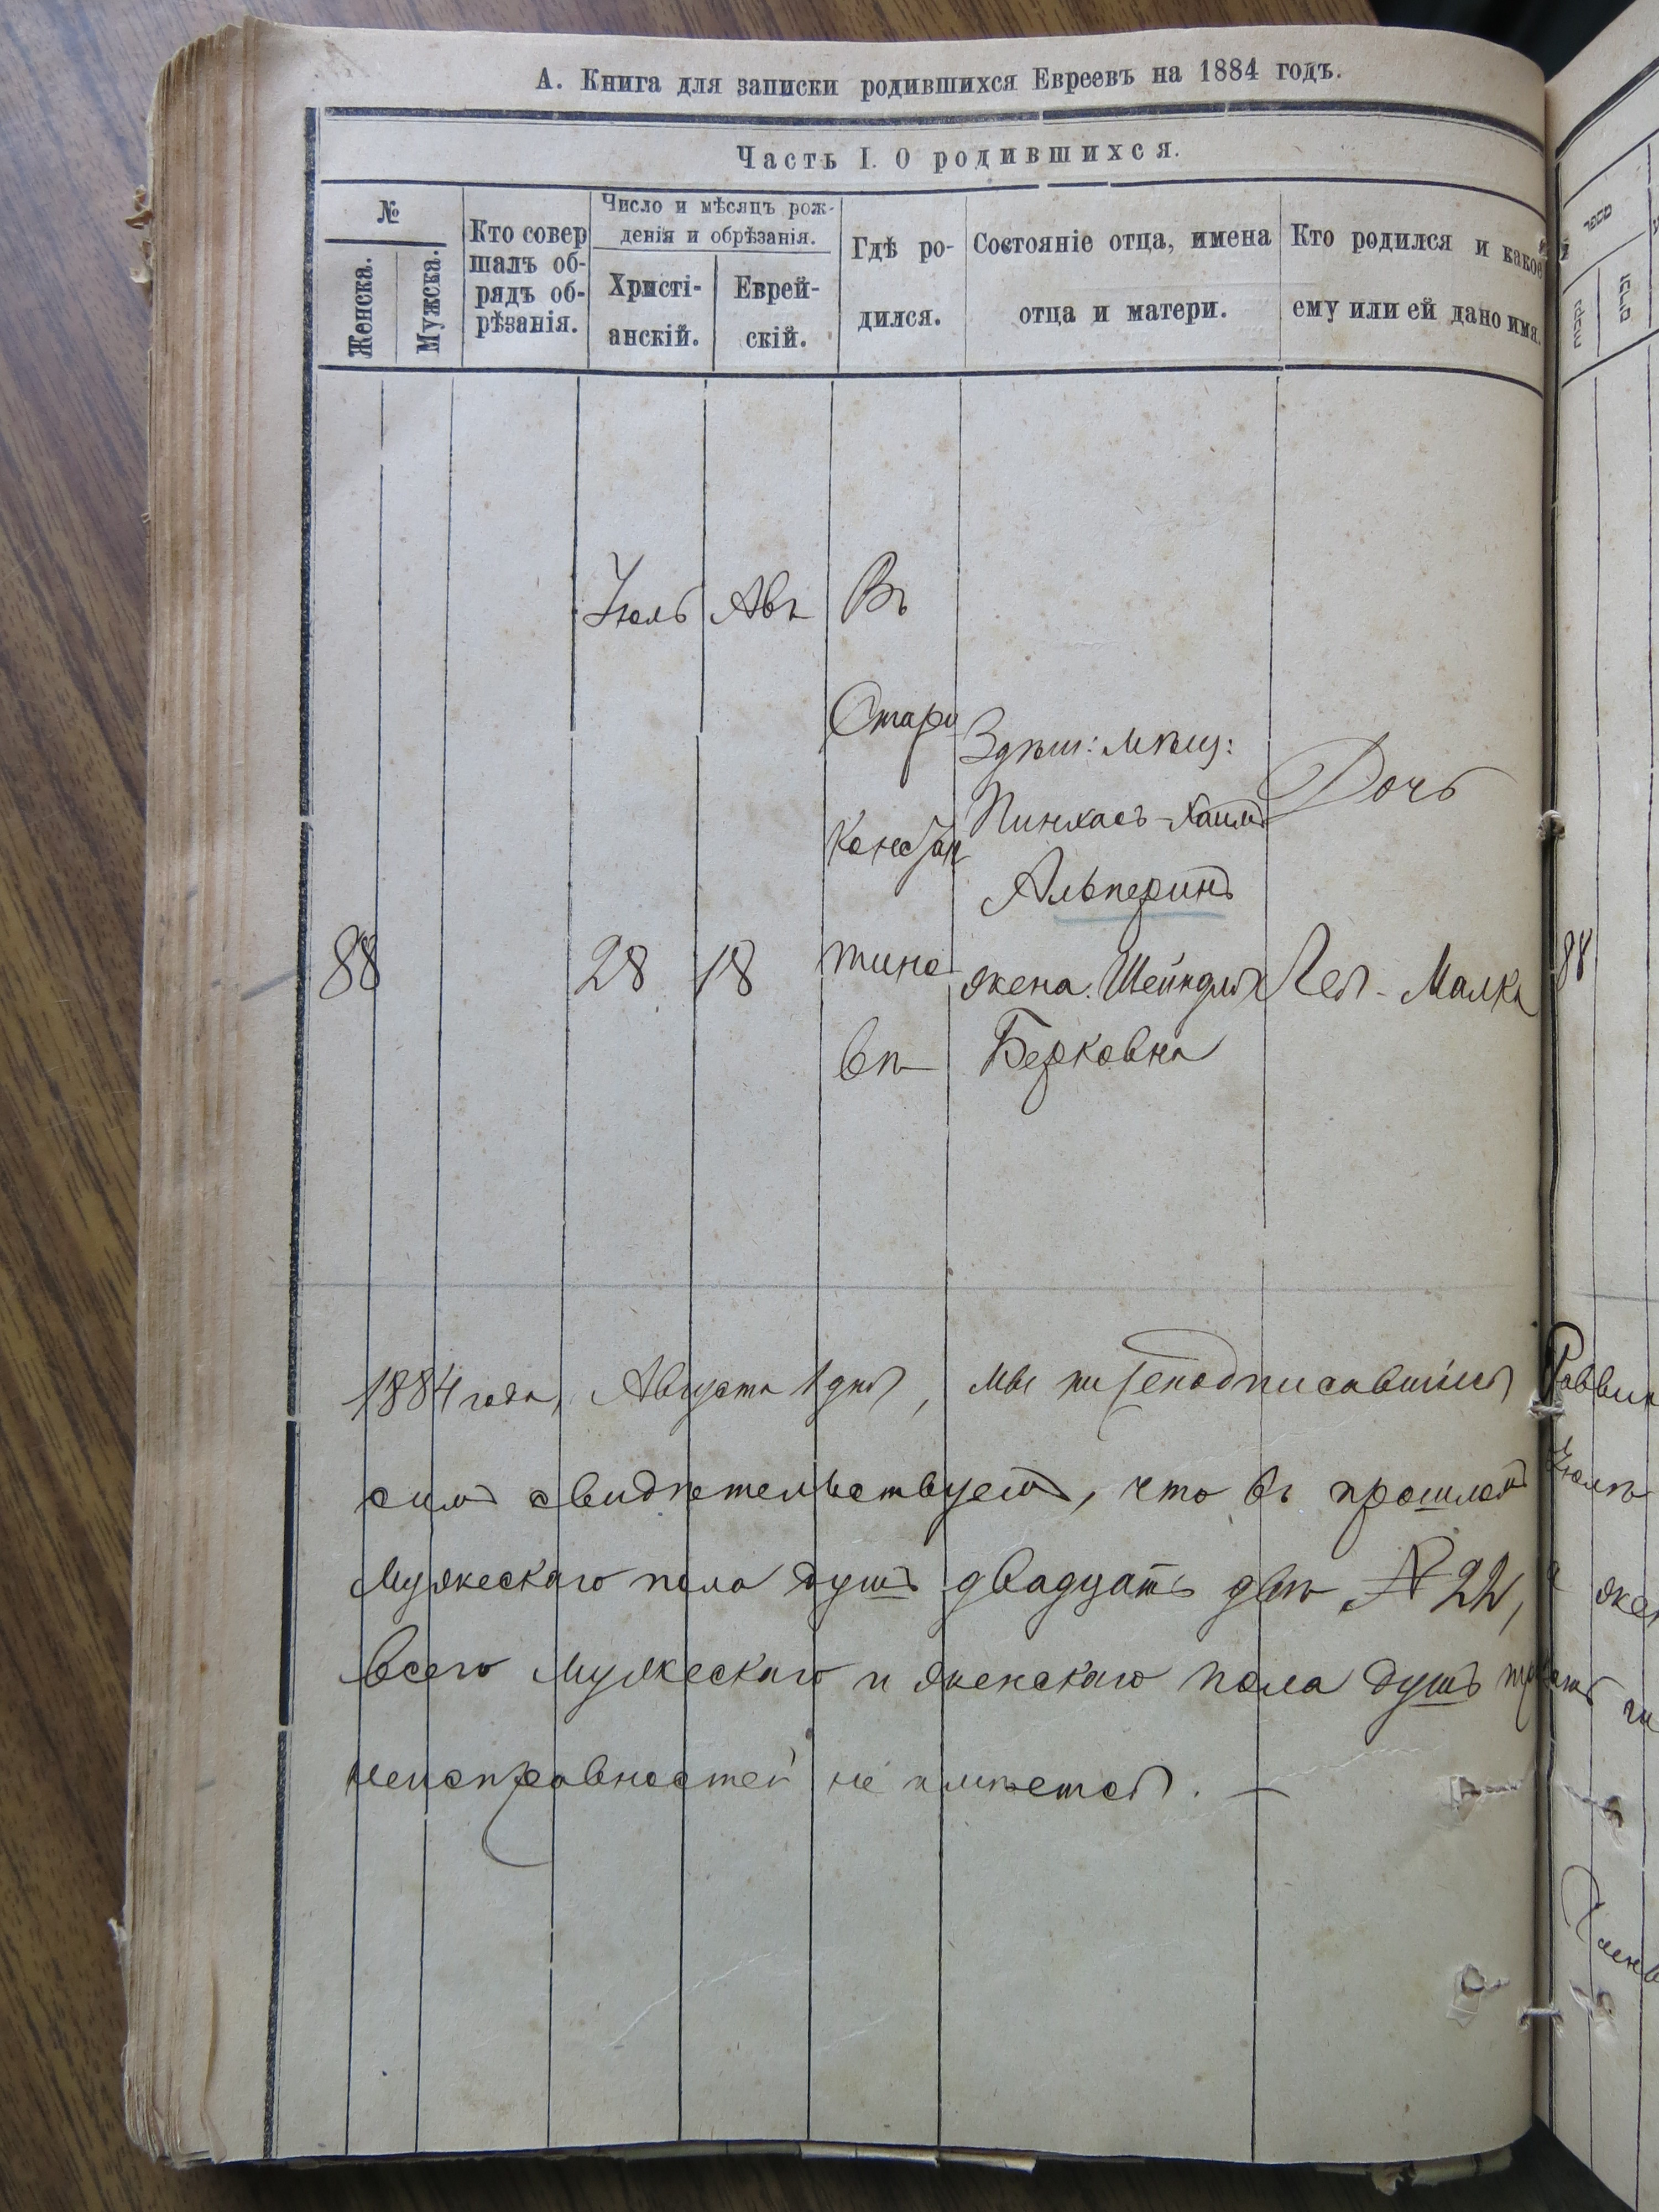 А. Книга для записки родившихся Евреевъ на 1884 годъ.
Часть I. О родившихся.
№
Женска.
Мужска.
Кто совер
шалъ об-
рядъ об-
рѣзанія.
Число и мѣсяцъ рож-
денія и обрѣзанія.
Христі-
анскій.
Еврей-
скій.
Гдѣ ро-
дился.
Состояніе отца, имена
отца и матери.
Кто родился и какое
ему или ей дано имя.
מספר
נקבות
זכרים
Іюль Авъ Въ
Старо
Констан
тино
вѣ
Здѣш: мѣщ:
Пинхасъ-Хаимъ
Альперинъ
жена Шейндля
Берковна
Дочь
Лея-Малка
88 28 18
88
1884 года, Августа 1 дня, мы нижеподписавшіеся Раввин
симъ свидѣтельствуемъ, что въ прошломъ Іюлѣ
Мужескаго пола душъ двадцать двѣ № 22, а жен
всего Мужескаго и женскаго пола душъ
неисправностей не имѣется. —
Члены